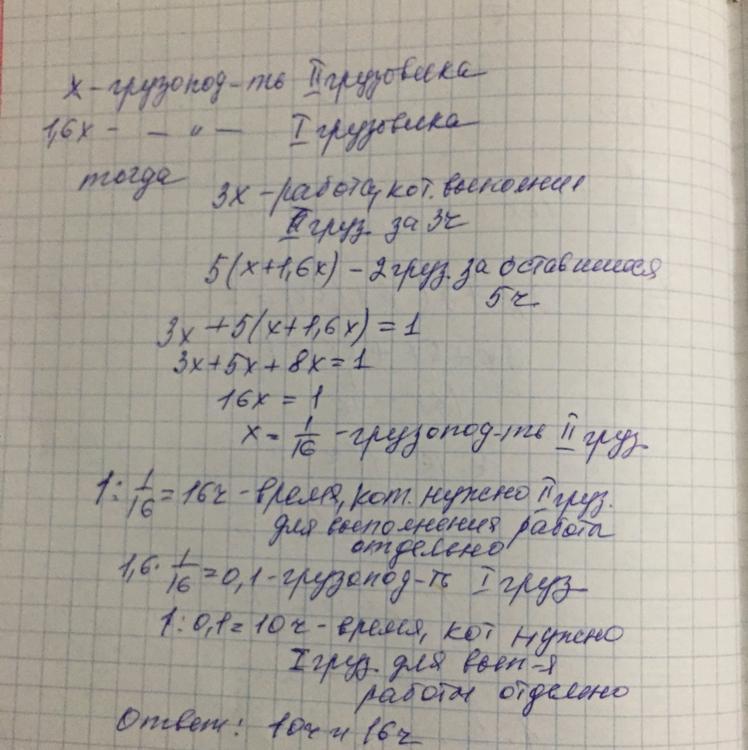 x - грузопод-ть II грузовика
1,6x - — " — I грузовика
тогда
3x - работа, кот. выполнил
II груз. за 3ч
5(x+1,6x) - 2 груз. за оставшиеся
5ч.
3x + 5(x+1,6x) = 1
3x+5x+8x=1
16x = 1
x = 1/16 - грузопод-ть II груз.
1 : 1/16 = 16ч - время, кот. нужно II груз.
для выполнения работа
отдельно
1,6 · 1/16 = 0,1 - грузопод-ть I груз
1 : 0,1 = 10ч - время, кот нужно
I груз. для вып-я
работы отдельно
Ответ: 10ч и 16ч